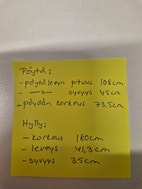 Pöytä:
- pöytälevyn pituus 108cm
- —"— syvyys 45cm
- pöydän korkeus 73.5cm
Hylly:
- korkeus 180cm
- leveys 41,3cm
- syvyys 35cm